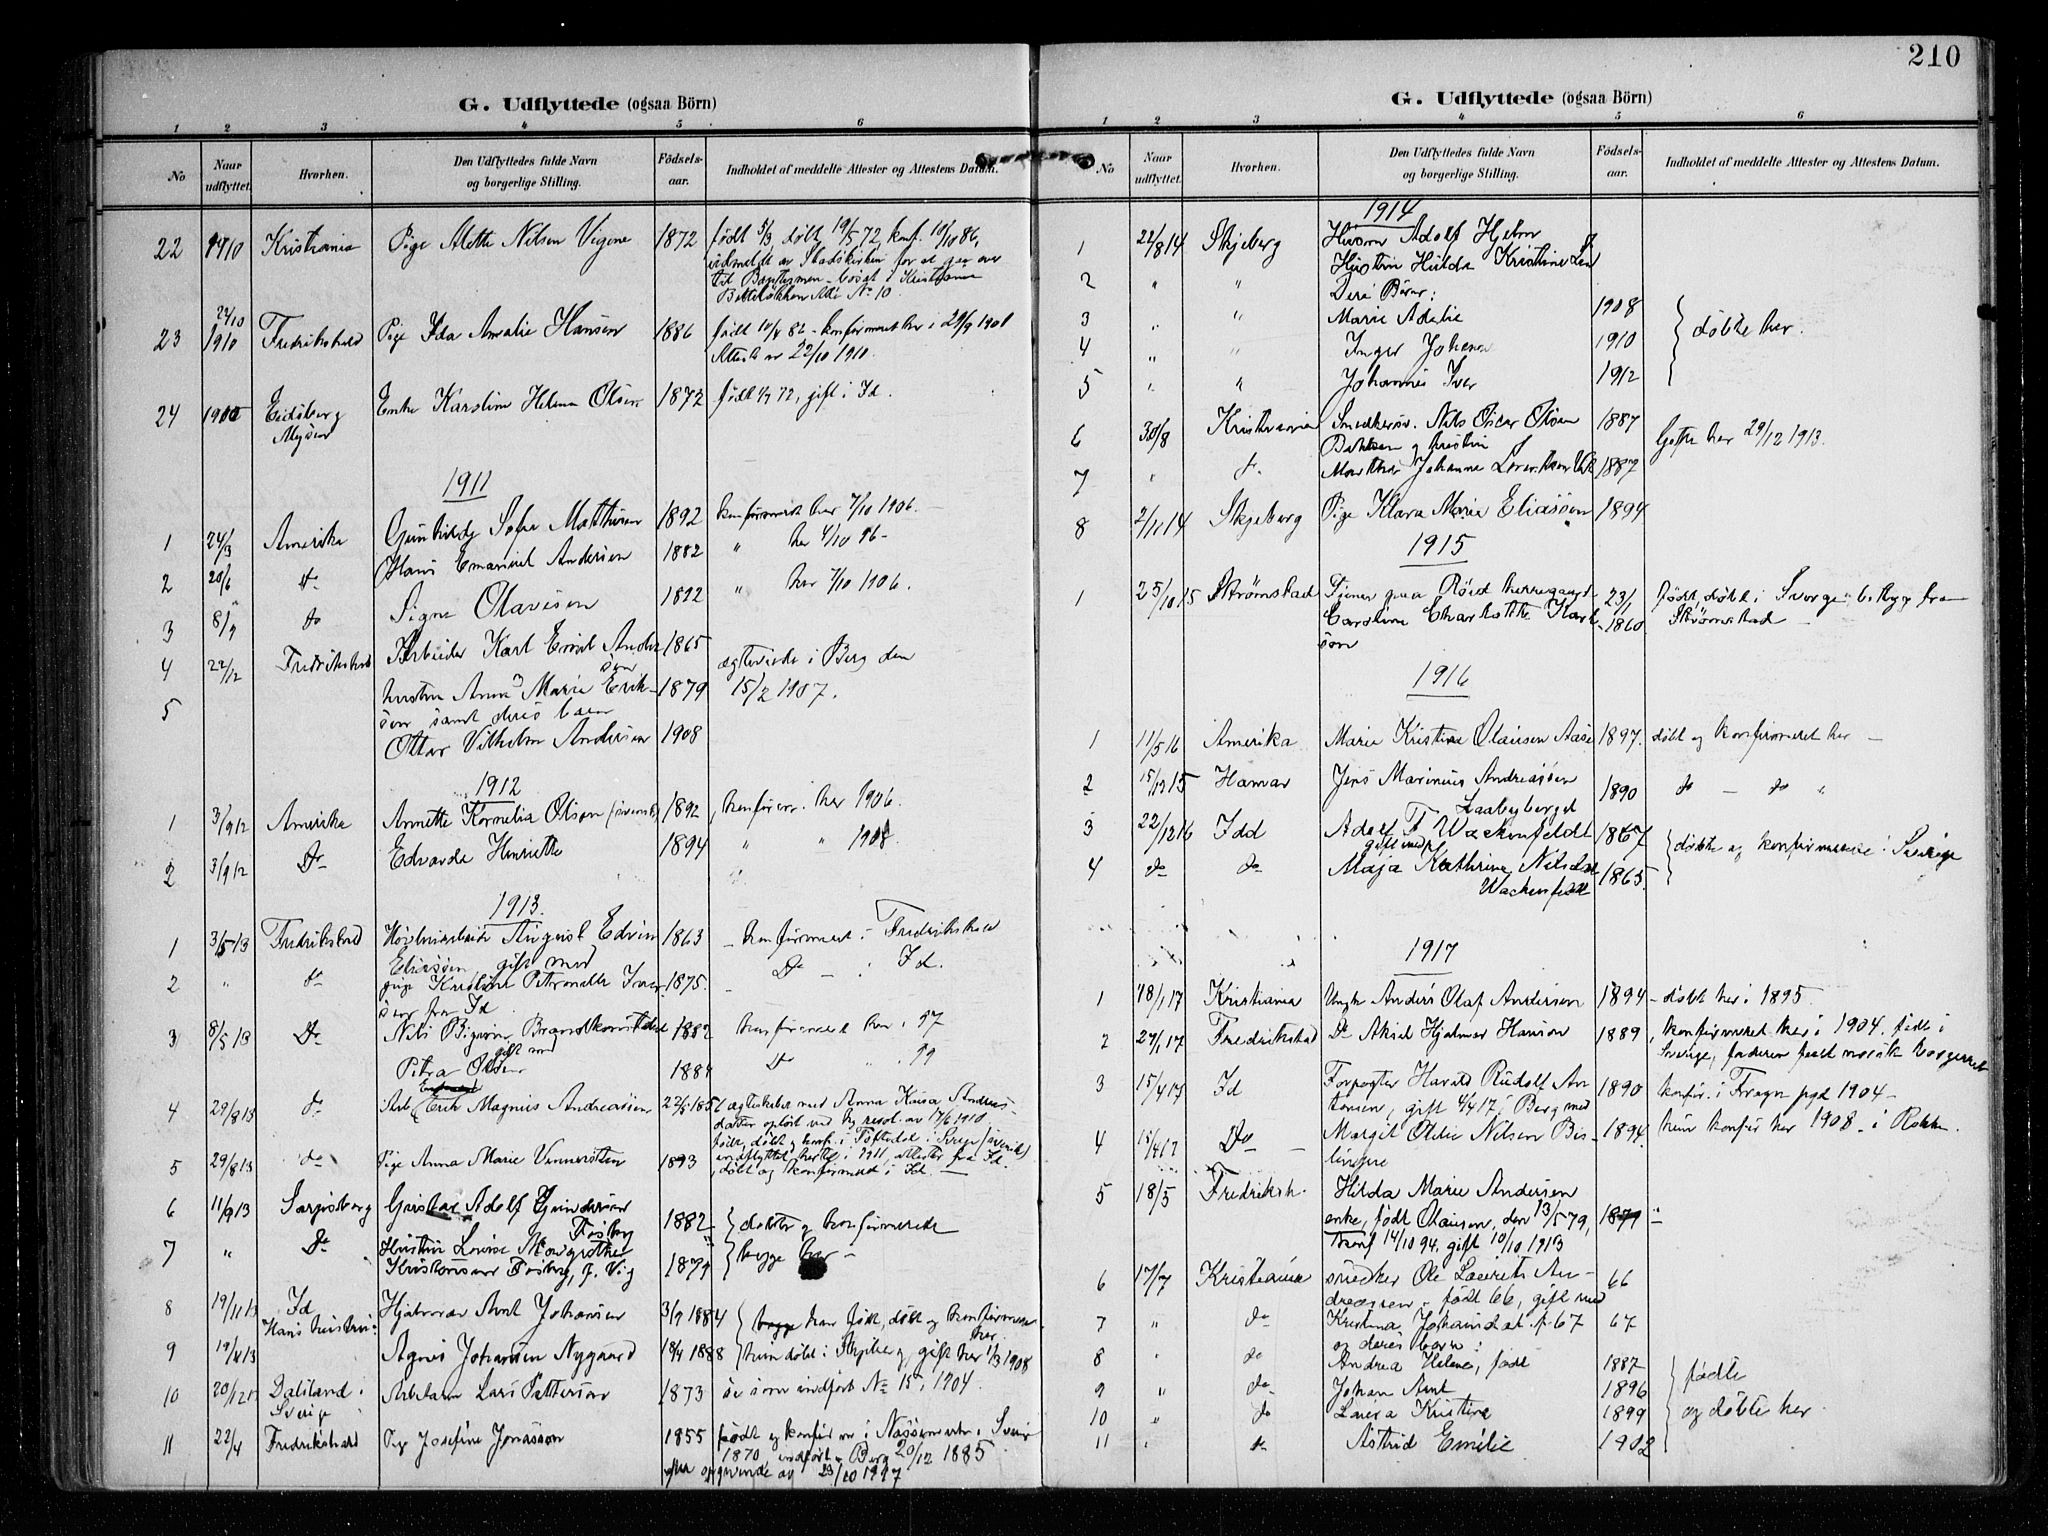 G. Udflyttede (ogsaa Börn)
1 2 3 4 5 6
No
Naar udflyttet.
Hvorhen.
Den Udflyttedes fulde Navn og borgerlige Stilling.
Fødsels-aar.
Indholdet af meddelte Attester og Attestens Datum.
22 Kristiania Pige Alette Nilsen 1872 født 5/3, døbt 19/5 72, konf. 10/10 86,
udmeldt av Stadskirken for at gaa over
til Baptismen bosat i Kristiania
No 10.
23 24/10 1910 Fredrikshald Pige Ida Amalie Hansen 1886 født konfirmeret her i 29/9 1901
Attest av 22/10 1910.
24 Eidsberg Enke Karoline Helene Olsen 1872 født 72, gift i Id.
Mysen
1911
1 24/3 Amerika Gunhild Sofie Mathisen 1892 konfirmeret her 7/10 1906.
2 20/6 do Hans Emanuel Andersen 1882 " her 4/10 96
3 8/9 do Signe Olavesen 1892 " her 7/10 1906.
4 22/12 Fredrikshald Arbeider Karl Emil Ander 1865 ægteviede i Berg den
sen
5 hustru Anna Marie Erik- 1879 15/2 1907.
sen samt deres barn
Ottar Vilhelm Andersen 1908
1912
1 3/9 12 Amerika Annette Kornelia Olsen (svensk) 1892 konfirm. her 1906.
2 3/9 12 Do Edvarda Henriette 1894 " " 1908.
1913.
1 3/5 13 Fredrikshald August Edvin 1863 konfirmeret i Fredrikshald
Eliassen gift med
2 " do Petronelle Iver- 1875. Do i Id.
sen fra Id
3 8/5 13 Do Nils Brandkonstabel 1882 konfirmeret her i 97
gift med
Petra Olsen 188 Do " 99
4 29/8 13 do Arb. Erik Magnus Andreassen 22/5 185 ægteskabet med Anna Kaisa Andreas-
datter opløst ved kg. resol. av 17/6 1910
født, døbt og konf. i Töftedal i Sverige
indflyttet hertil i 1911, attester fra Id.
5 29/8 13 do Pige Anna Marie 1893 døbt og konfirmered i Id.
6 11/9 13 Sarpsborg Gustav Adolf Gundersen 1882 døbte og konfirmerede
Fosby
7 " Do Hustru Lovise Margrethe 1879 begge her
Kristensen Fosby, f. Vig
8 19/11 13 Id Hjalmar Arnt Johansen 3/9 1884 han født, døbt og konfirmeret
Hans hustru: her
9 19/4 13 Agnes Johansen Nygaard 18/4 1888 hun døbt i Skjeberg, gift her 1/3 1908
10 20/12 Dalsland i Arbm Lars Pettersen 1873 se som indført No 15, 1904.
Sverige
11 22/4 Fredrikshald Pige Josefine Jonasson 1855 født og konfirm. i i Sverige
1870 indført i Berg 20/12 1885
23/10 1917
210
G. Udflyttede (ogsaa Börn)
1 2 3 4 5 6
No
Naar udflyttet.
Hvorhen.
Den Udflyttedes fulde Navn og borgerlige Stilling.
Fødsels-aar.
Indholdet af meddelte Attester og Attestens Datum.
1914
1 22/8 14 Skjeberg Adolf Hjelm
2 " " Hustru Hulda Kristine
Deres Børn:
3 " " Marie Adelie 1908
4 " " Inger Johanne 1910 døbte her.
5 " " Johannes Iver 1912
6 30/8 Kristiania Snedkersv. Nils Oscar Olsen 1887 Gifte her 29/12 1913.
Bakken og hustru
7 " do. Marthe Johanne 1887
8 2/11 14 Skjeberg Pige Klara Marie Eliassen 1894
1915
1 25/10 15 Strømstad Tjener paa Röed herregaard 23/1 født, døbt i Sverge
Carolina Charlotte Karl 1860 Strømstad
son
1916
1 11/5 16 Amerika Marie Kristine Olaisen Aase 1897. døbt og konfirmeret her
2 15/12 15 Hamar Jens Marinius Andreassen 1890 do do "
Laabyberget
3 22/12 16 Idd Adolf F. Wackenfeldt 1867 døbte og konfirmerede i Sverige
gift med
4 do do Maja Kathrine Nilsdat 1865.
Wackenfeldt
1917
1 18/1 17 Kristiania Ungk. Anders Olaf Andersen 1894 døbt her i 1895.
2 27/1 17 Fredrikstad Do Aksel Hjalmar Hanson 1889 konfirmeret her i 1904. født i
Sverige, faderen født norsk borgerret
3 15/4 17 Id Forpagter Harald Rudolf An 1890 konfir. i Frogn pgd 1904
tonsen, gift 4/4 17 i Berg med
4 15/4 17 Do Margit Odlie Nilsen Bis- 1894. hun konfir her 1908 i Rokke.
lingen
5 18/5 Fredriksh. Hilda Marie Andersen
enke, født Olausen, den 13/5 79, 1879
konf 14/10 94. gift 10/10 1913
6 17/7 Kristiania snedker Ole Laurits An- 66
dreassen, født 66, gift med
7 " do Kristina Johansdat. f. 67 67
og deres barn:
8 " do Andrea Helene, født 1887 fødte
9 " do Johan Arnt 1896
10 " do Laura Kristine 1899 og døbte her.
11 " do Astrid Emilie 1902